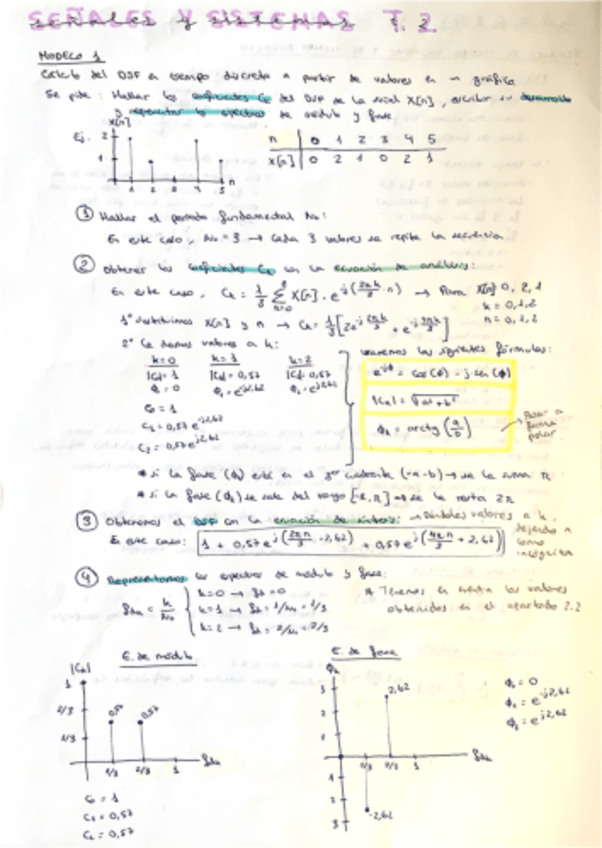 SEÑALES Y SISTEMAS T.2.
MODELO 1
Cálculo del DSF en tiempo discreto a partir de valores en un gráfico
Se pide: Hallar los coeficientes Ck del DSF de la señal X[n], escribir su desarrollo
y representar los espectros de módulo y fase.
Ej. X[n] 2 1 1 2 3 4 5 n
n 0 1 2 3 4 5
X[n] 0 2 1 0 2 1
① Hallar el periodo fundamental No:
En este caso, No = 3 → Cada 3 valores se repite la secuencia
② Obtener los coeficientes Ck con la ecuación de análisis:
En este caso, Ck = 1/3 Σ X[n] · e^-j(2πk/3 · n) → Para X[n] 0, 2, 1
k = 0, 1, 2
n = 0, 1, 2
1º Sustituimos X[n] y n → Ck = 1/3 [2e^-j2πk/3 + e^-j4πk/3]
2º Le damos valores a k:
k=0 k=1 k=2
|C0| = 1 |C1| = 0,57 |C2| = 0,57
Φ0 = 0 Φ1 = e^-j2,62 Φ2 = e^j2,62
C0 = 1
C1 = 0,57 e^-j2,62
C2 = 0,57 e^j2,62
usaremos las siguientes fórmulas:
e^-jΦ = cos(Φ) - j·sen(Φ)
|Ck| = √a²+b²
Φk = arctg (a/b)
Pasar a forma polar
* si la fase (Φk) está en el 3er cuadrante (-a-b) → se le suma π
* si la fase (Φk) se sale del rango [-π, π] → se le resta 2π
③ Obtenemos el DSF con la ecuación de síntesis: → Dándoles valores a k, dejando n como incógnita
En este caso: 1 + 0,57 e^j(2πn/3 - 2,62) + 0,57 e^j(4πn/3 + 2,62)
④ Representamos los espectros de módulo y fase:
fdk = k/No
k=0 → fd=0
k=1 → fd = 1/No = 1/3
k=2 → fd = 2/No = 2/3
* Tenemos en cuenta los valores
obtenidos en el apartado 2.2
E. de módulo
|Ck| 1 2/3 1/3 0,57 0,57 1/3 2/3 1 fdk
C0 = 1
C1 = 0,57
C2 = 0,57
E. de fase
Φk 3 2 1 2,62 1/3 2/3 1 fdk 1 2 3 -2,62
Φ0 = 0
Φ1 = e^-j2,62
Φ2 = e^j2,62